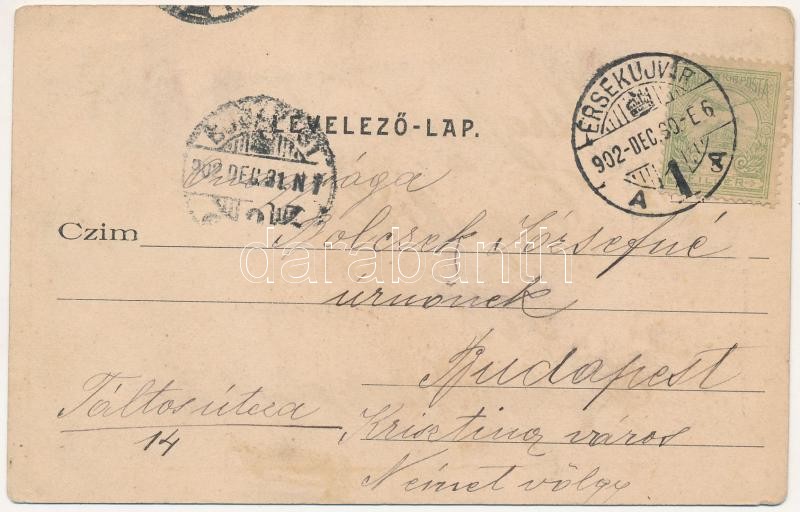 LEVELEZŐ-LAP.
ÉRSEKUJVÁR
902-DEC.30-E6
A 1 A
BUDAPEST
902 DEC.31.N1
Czim
Józsefné
úrnőnek
Budapest
Táltos útcza
14
Krisztina város
Német völgy
darabanth